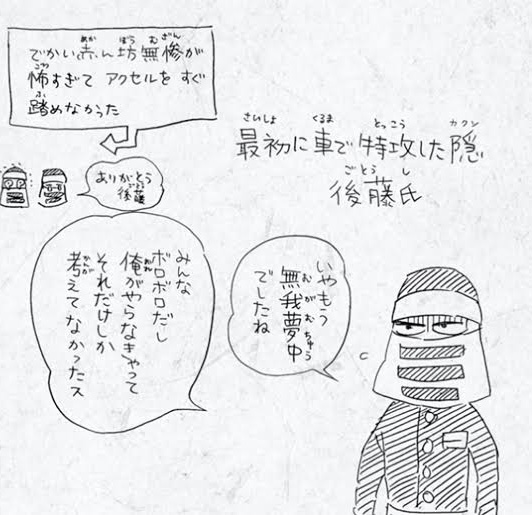 でかい赤ん坊無惨が
怖すぎて アクセルを すぐ
踏めなかった
ありがとう
後藤
最初に車で特攻した隠
後藤氏
いやもう
無我夢中
でしたね
みんな
ボロボロだし
俺がやらなきゃって
それだけしか
考えてなかったス